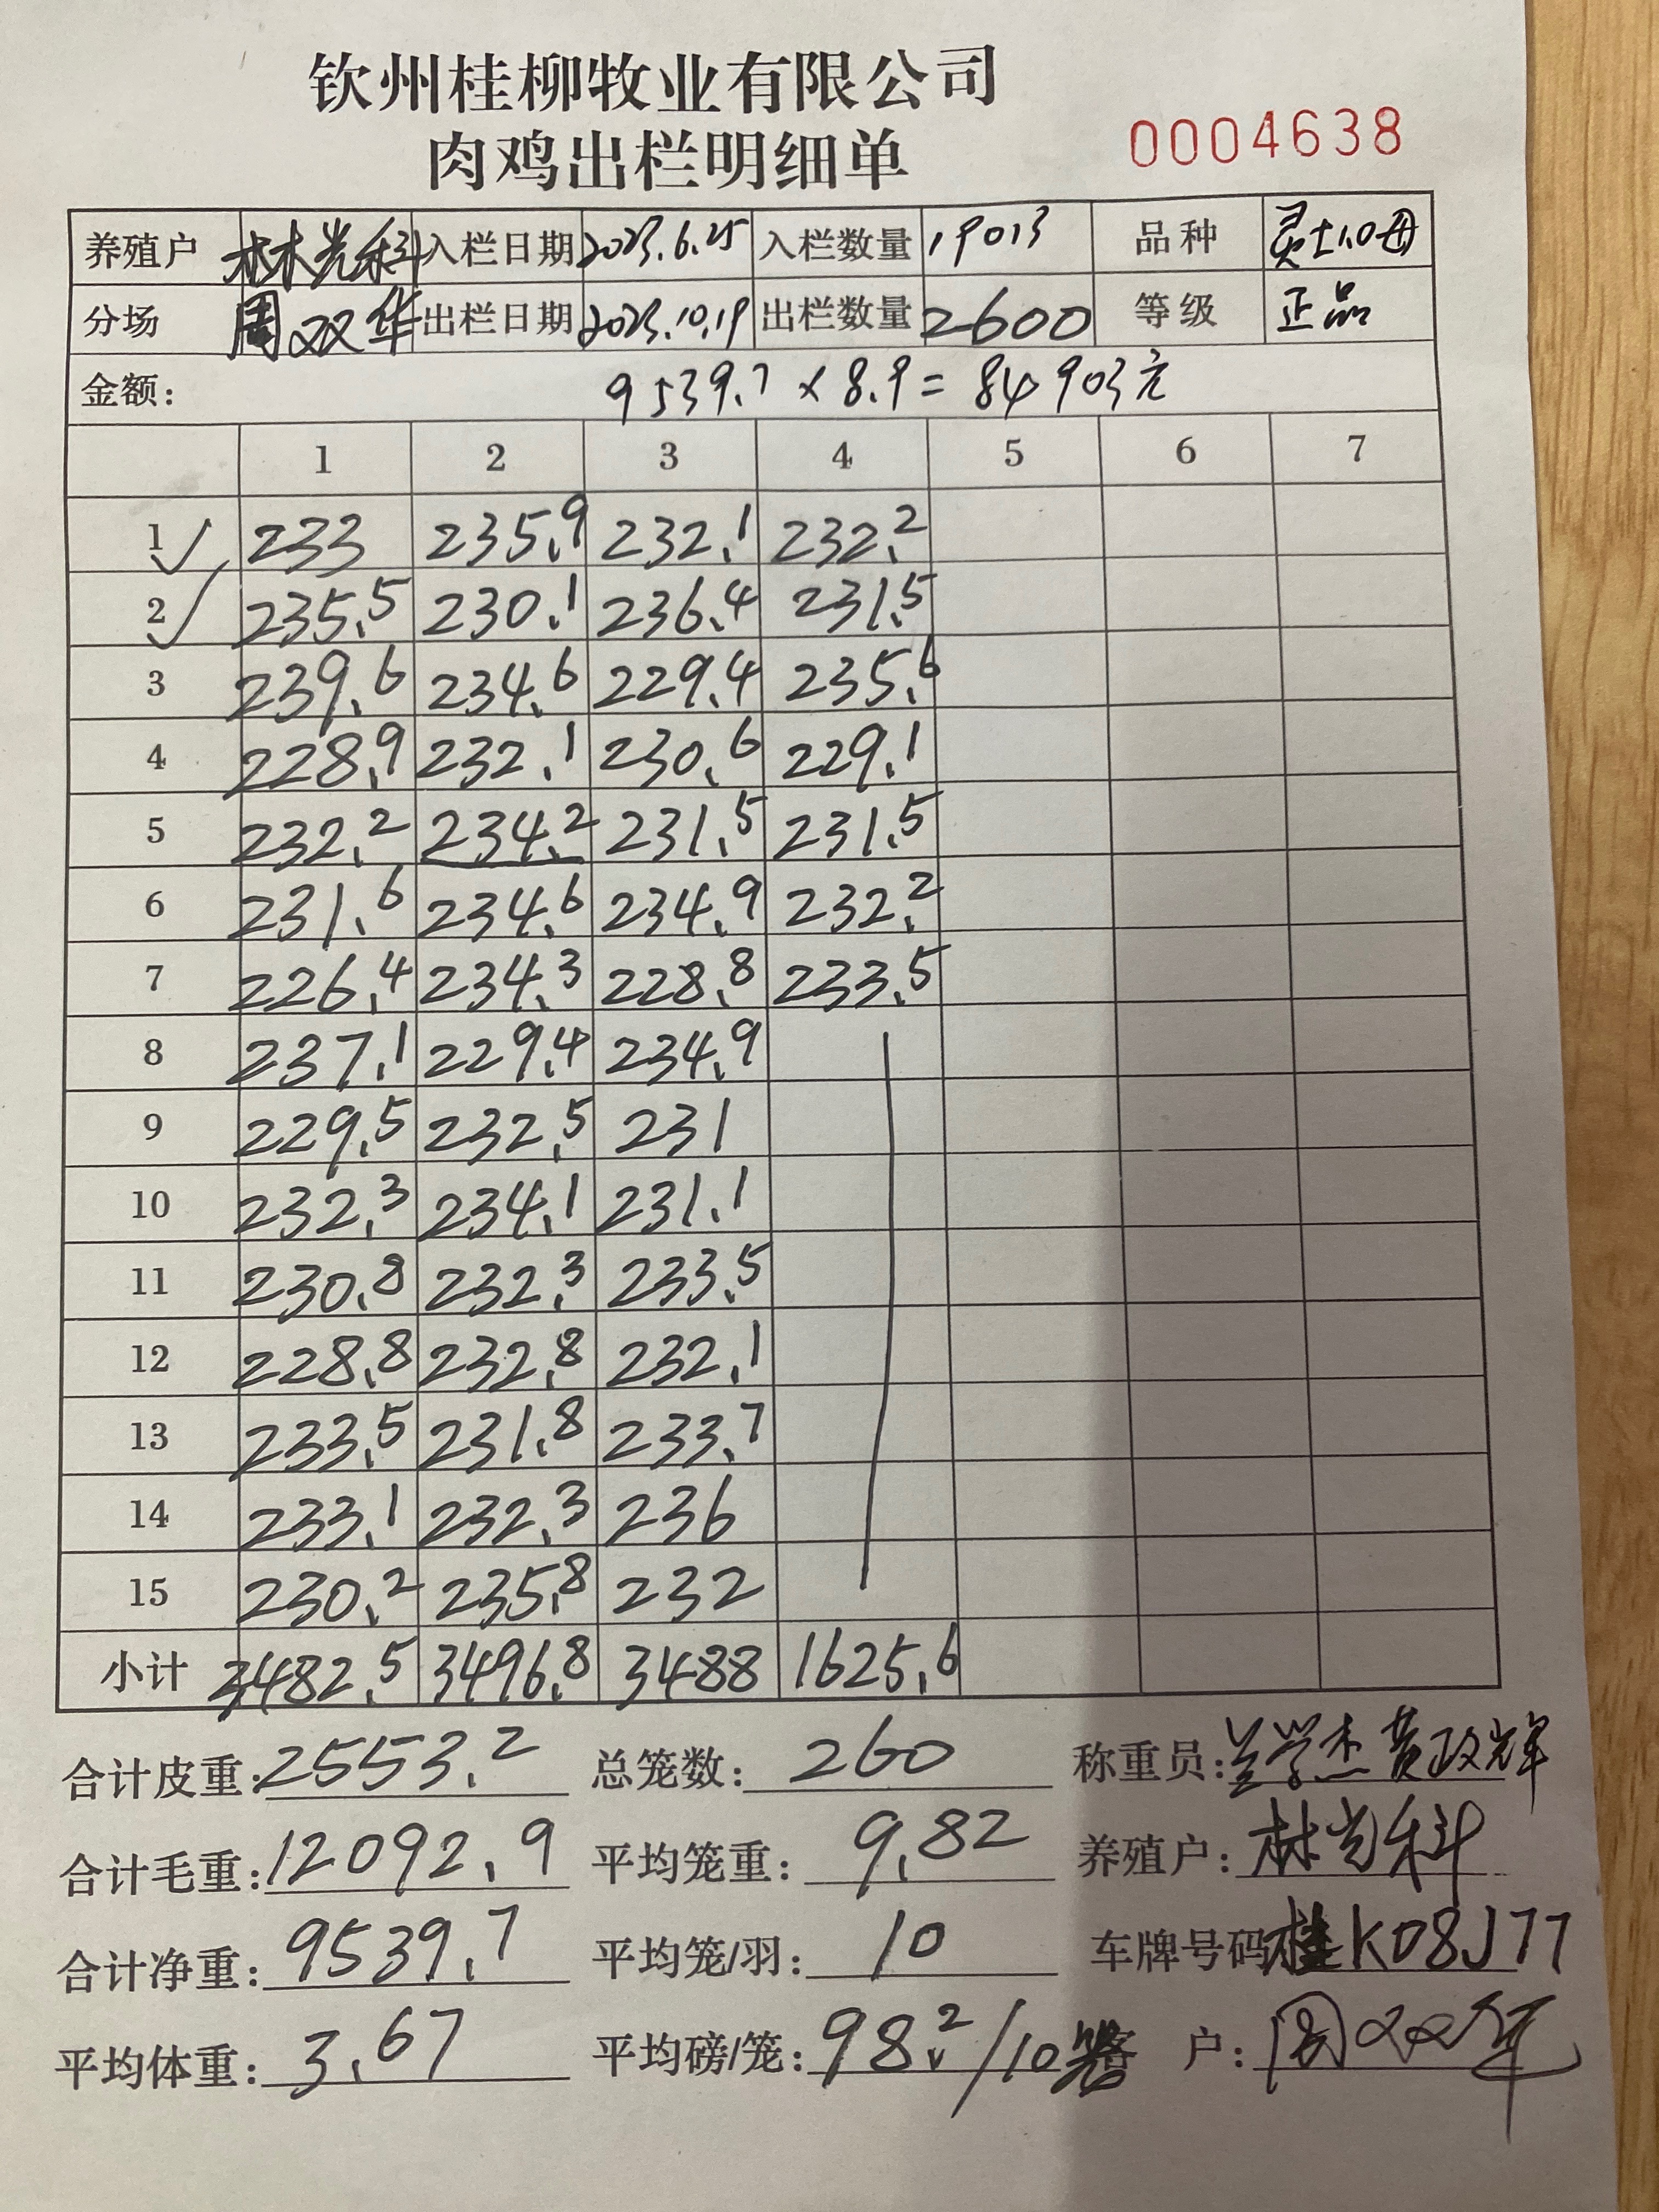 钦州桂柳牧业有限公司
肉鸡出栏明细单 0004638
养殖户 林光科 入栏日期 2023.6.25 入栏数量 19013 品种 灵士1.0母
分场 周双华 出栏日期 2023.10.19 出栏数量 2600 等级 正品
金额: 9539.7×8.9=84903元
1 2 3 4 5 6 7
1 233 235.9 232.1 232.2
2 235.5 230.1 236.4 231.5
3 239.6 234.6 229.4 235.6
4 228.9 232.1 230.6 229.1
5 232.2 234.2 231.5 231.5
6 231.6 234.6 234.9 232.2
7 226.4 234.3 228.8 233.5
8 237.1 229.4 234.9
9 229.5 232.5 231
10 232.3 234.1 231.1
11 230.8 232.3 233.5
12 228.8 232.8 232.1
13 233.5 231.8 233.7
14 233.1 232.3 236
15 230.2 235.8 232
小计 3482.5 3496.8 3488 1625.6
合计皮重: 2553.2 总笼数: 260 称重员: 学杰 黄政辉
合计毛重: 12092.9 平均笼重: 9.82 养殖户: 林光科
合计净重: 9539.7 平均笼/羽: 10 车牌号码 桂KD8J77
平均体重: 3.67 平均磅/笼: 98.2/10笼 客 户: 周双华